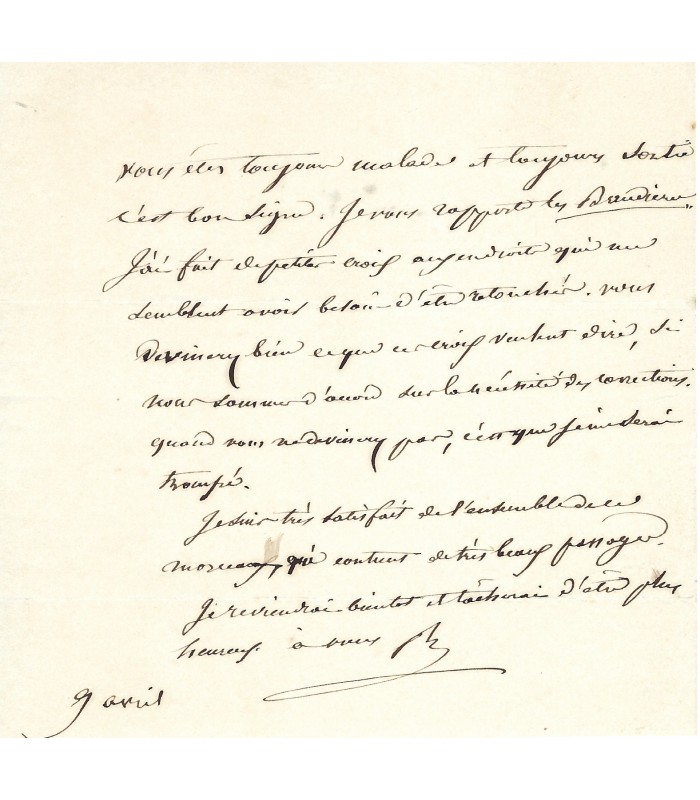 vous êtes toujours malade et toujours sortie
c'est bon signe. Je vous rapporte les Bandiera
J'ai fait de petites croix aux endroits qui me
semblent avoir besoin d'être retouchés. vous
devinerez bien ce que ces croix veulent dire, si
nous sommes d'accord sur la nécessité des corrections.
quand vous ne devinerez pas, c'est que je me serai
trompé.
Je suis très satisfait de l'ensemble de ce
morceau, qui contient de très beaux passages.
Je reviendrai bientot et tâcherai d'être plus
heureux. à vous
9 avril